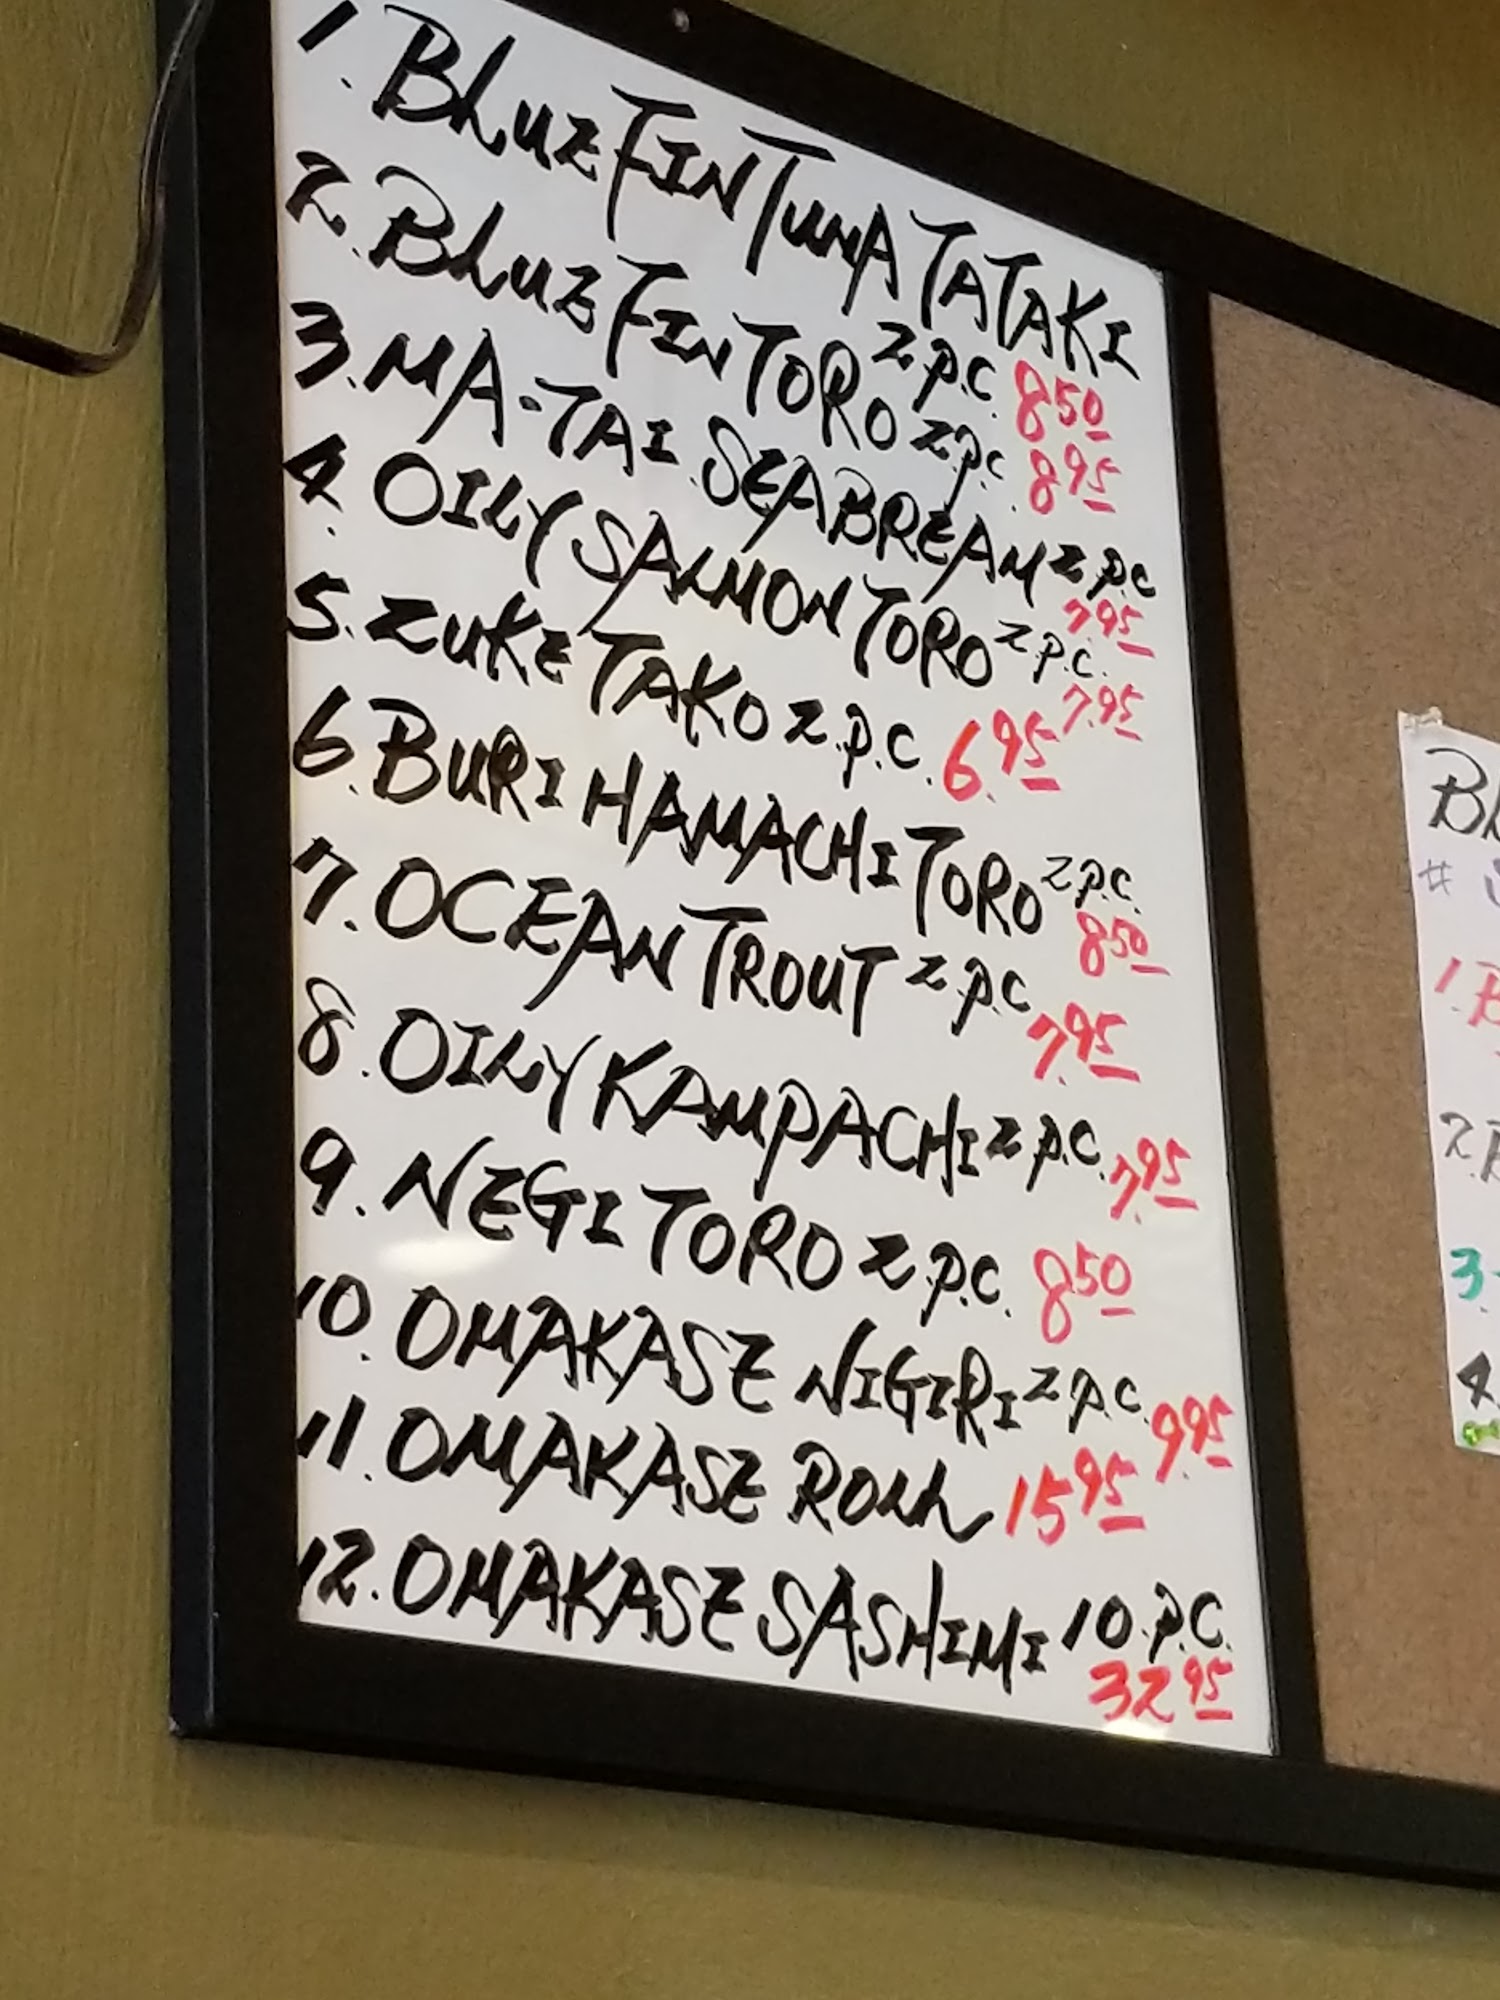 1. BLUE FIN TUNA TATAKI
2 P.C. 8.50
2. BLUE FIN TORO 2 P.C. 8.95
3. MA-TAI SEABREAM 2 P.C
7.95
4. OILY SALMON TORO 2 P.C.
7.95
5. ZUKE TAKO 2 P.C. 6.95
6. BURI HAMACHI TORO 2 P.C.
8.50
7. OCEAN TROUT 2 P.C
7.95
8. OILY KAMPACHI 2 P.C. 7.95
9. NEGI TORO 2 P.C. 8.50
10. OMAKASE NIGIRI 2 P.C. 9.95
11. OMAKASE ROLL 15.95
12. OMAKASE SASHIMI 10 P.C.
32.95
#
1.
2.
3.
4.